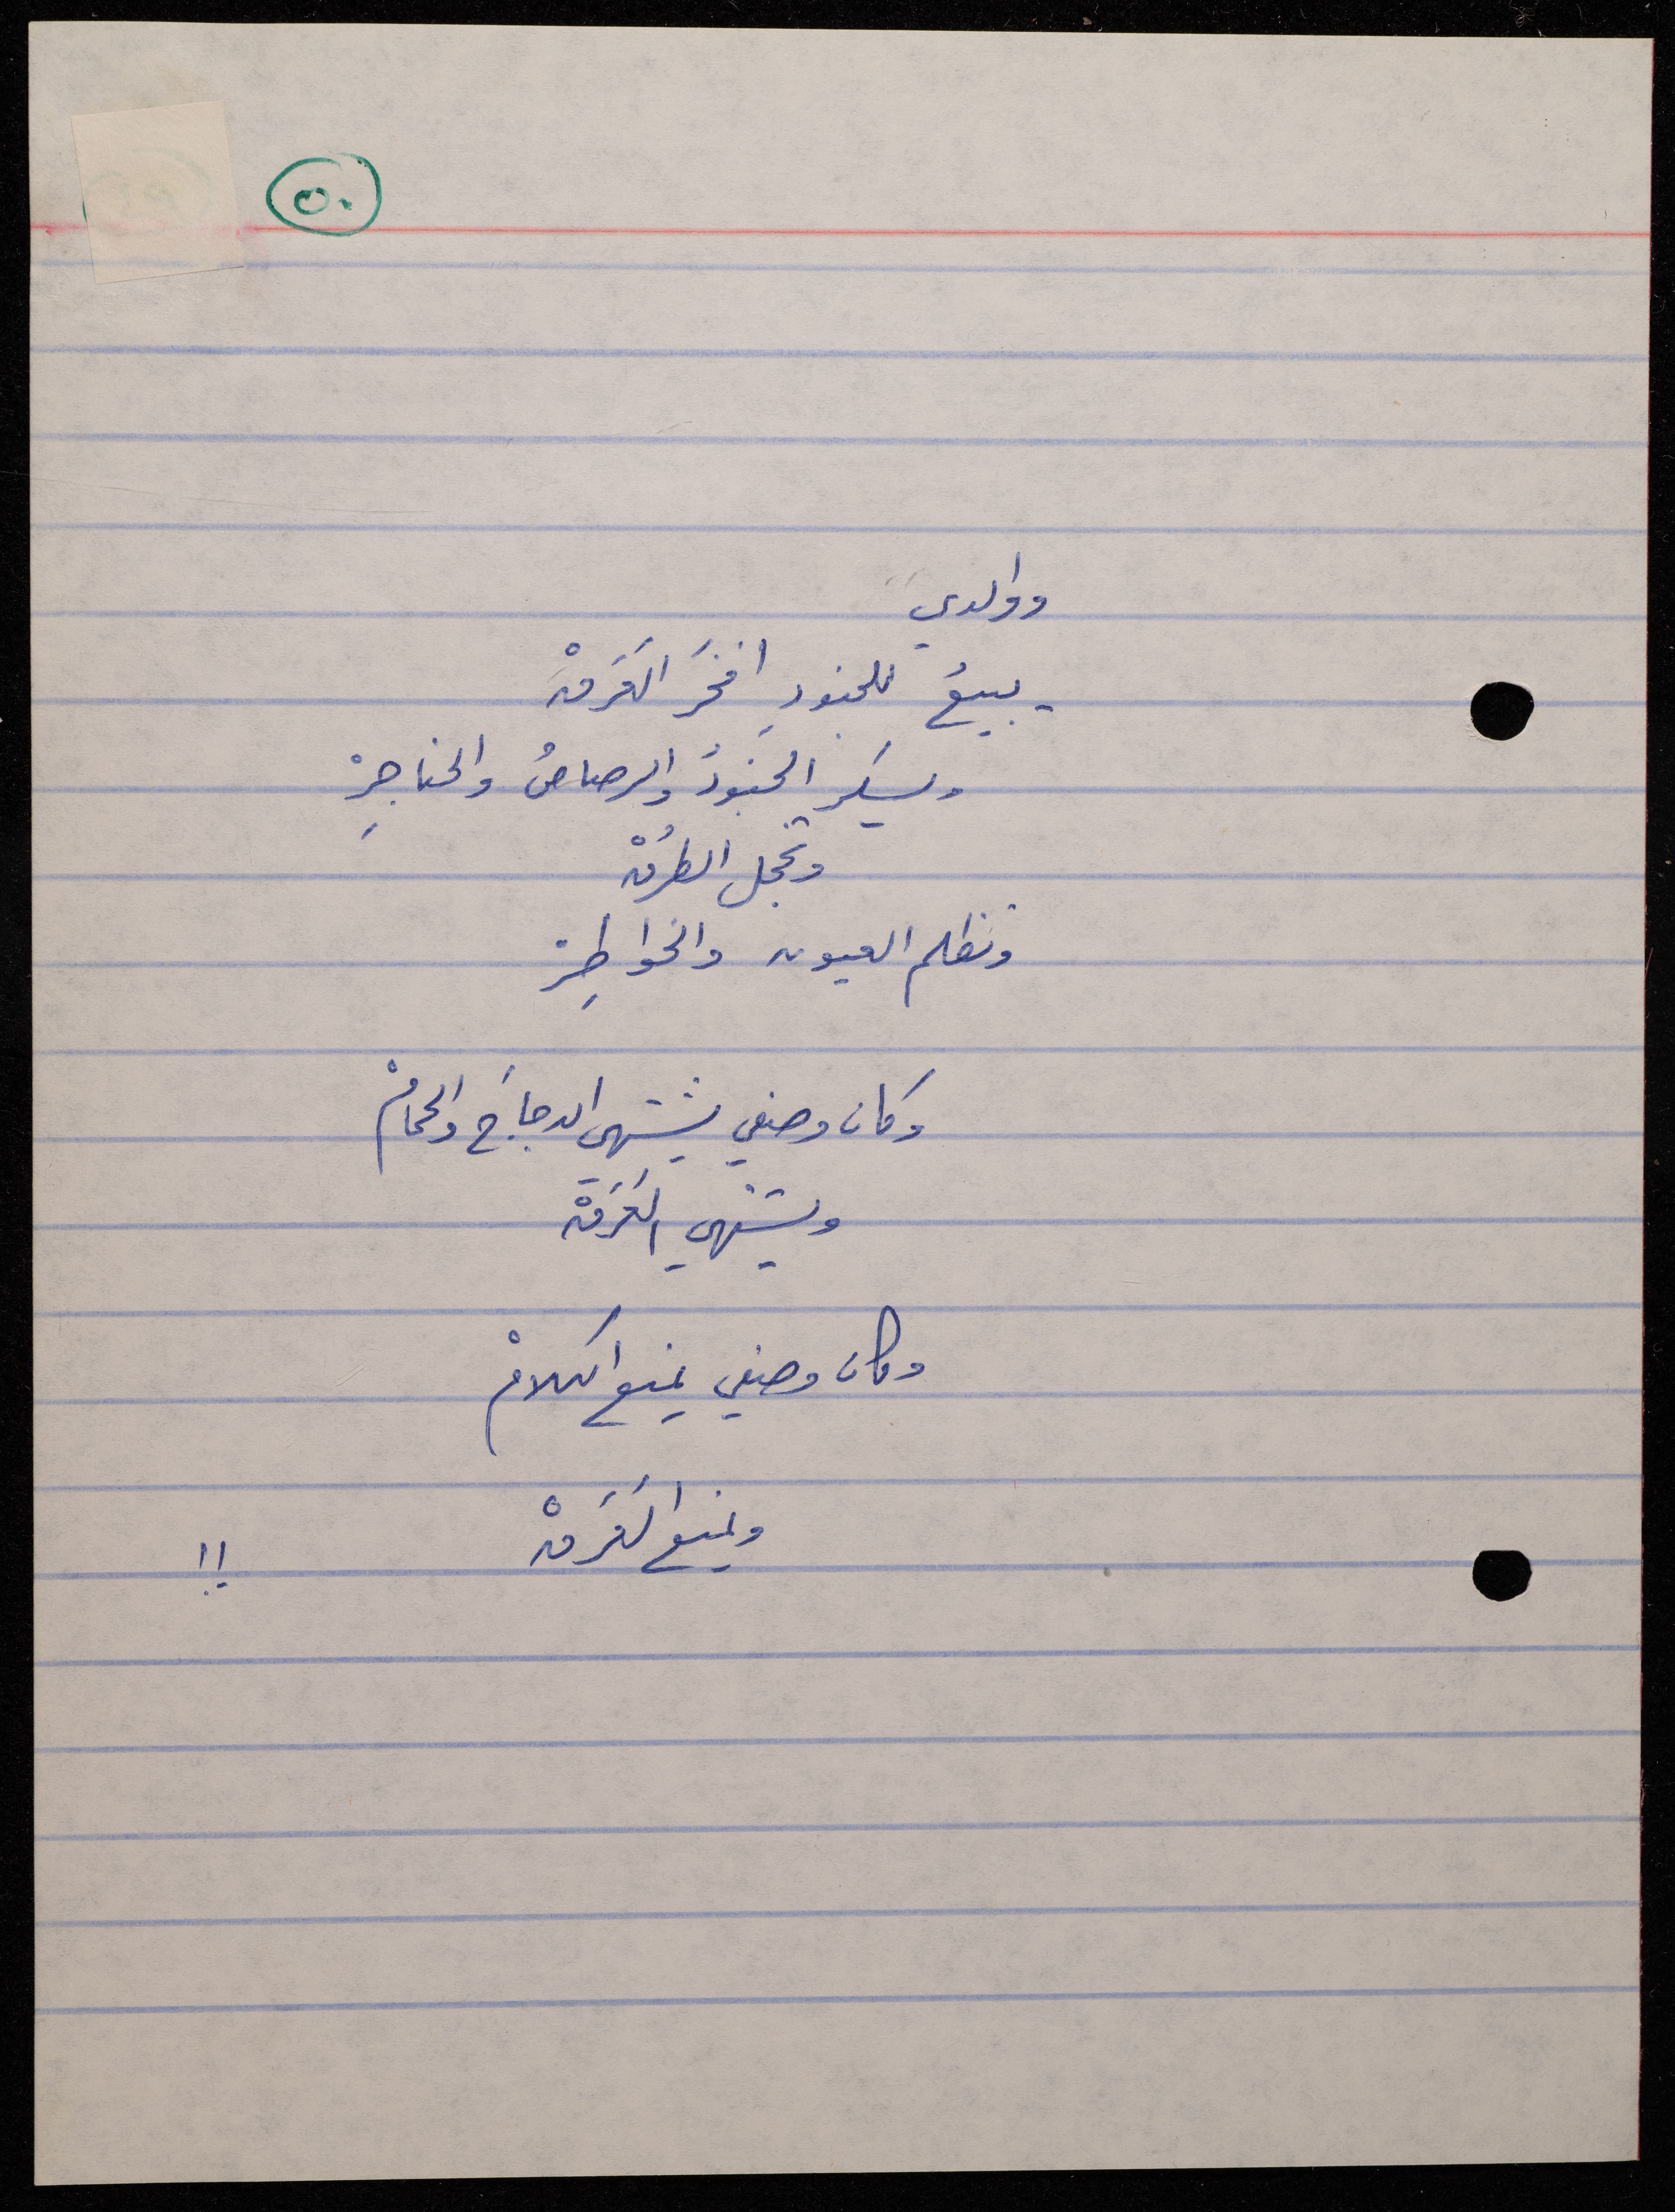 ٥٠
ووالدي
يبيعُ للجنودِ افخرَ العَرَقْ
ويسكر الجنودُ والرصاصُ والخناجِرْ
وتخجل الطرُقْ
وتظلم العيون والخواطِرْ
وكان وصفي يشتهي الدجاجَ والحمامْ
ويشتهي العَرَقْ
وكان وصفي يمنع الكلامْ
ويمنع العَرَقْ !!